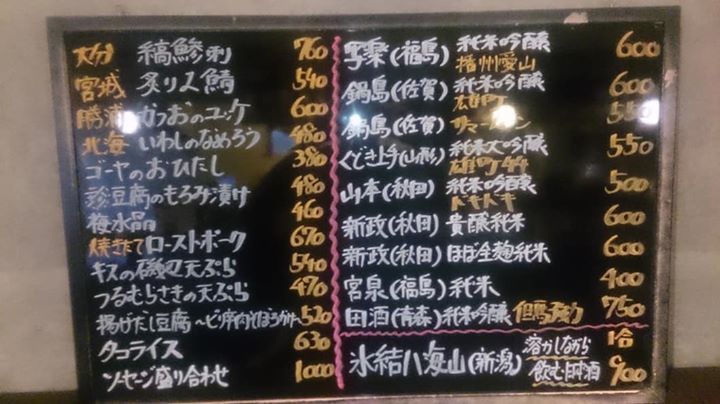 大分 稿鯵刺 760
宮城 炙り〆鯖 540
勝浦 かつおのユッケ 600
北海 いわしのなめろう 480
ゴーヤのおひたし 380
豆腐のもろみ漬け 480
梅水晶 460
焼きたてローストポーク 670
キスの磯辺天ぷら 540
つるむらさきの天ぷら 470
揚げだし豆腐 〜ピリ辛肉そぼろかけ〜 520
タコライス 630
ソーセージ盛り合わせ 1000
写楽(福島) 純米吟醸 600
播州愛山
鍋島(佐賀) 純米吟醸 600
雄町
鍋島(佐賀) サマームーン 550
くどき上手(山形) 純米大吟醸 550
雄町
山本(秋田) 純米吟醸 500
ドキドキ
新政(秋田) 貴醸純米 600
新政(秋田) ほぼ全麹純米 600
宮泉(福島) 純米 400
田酒(青森) 純米吟醸 但馬強力 750
氷結八海山(新潟) 溶かしながら 1合
飲む日本酒 900